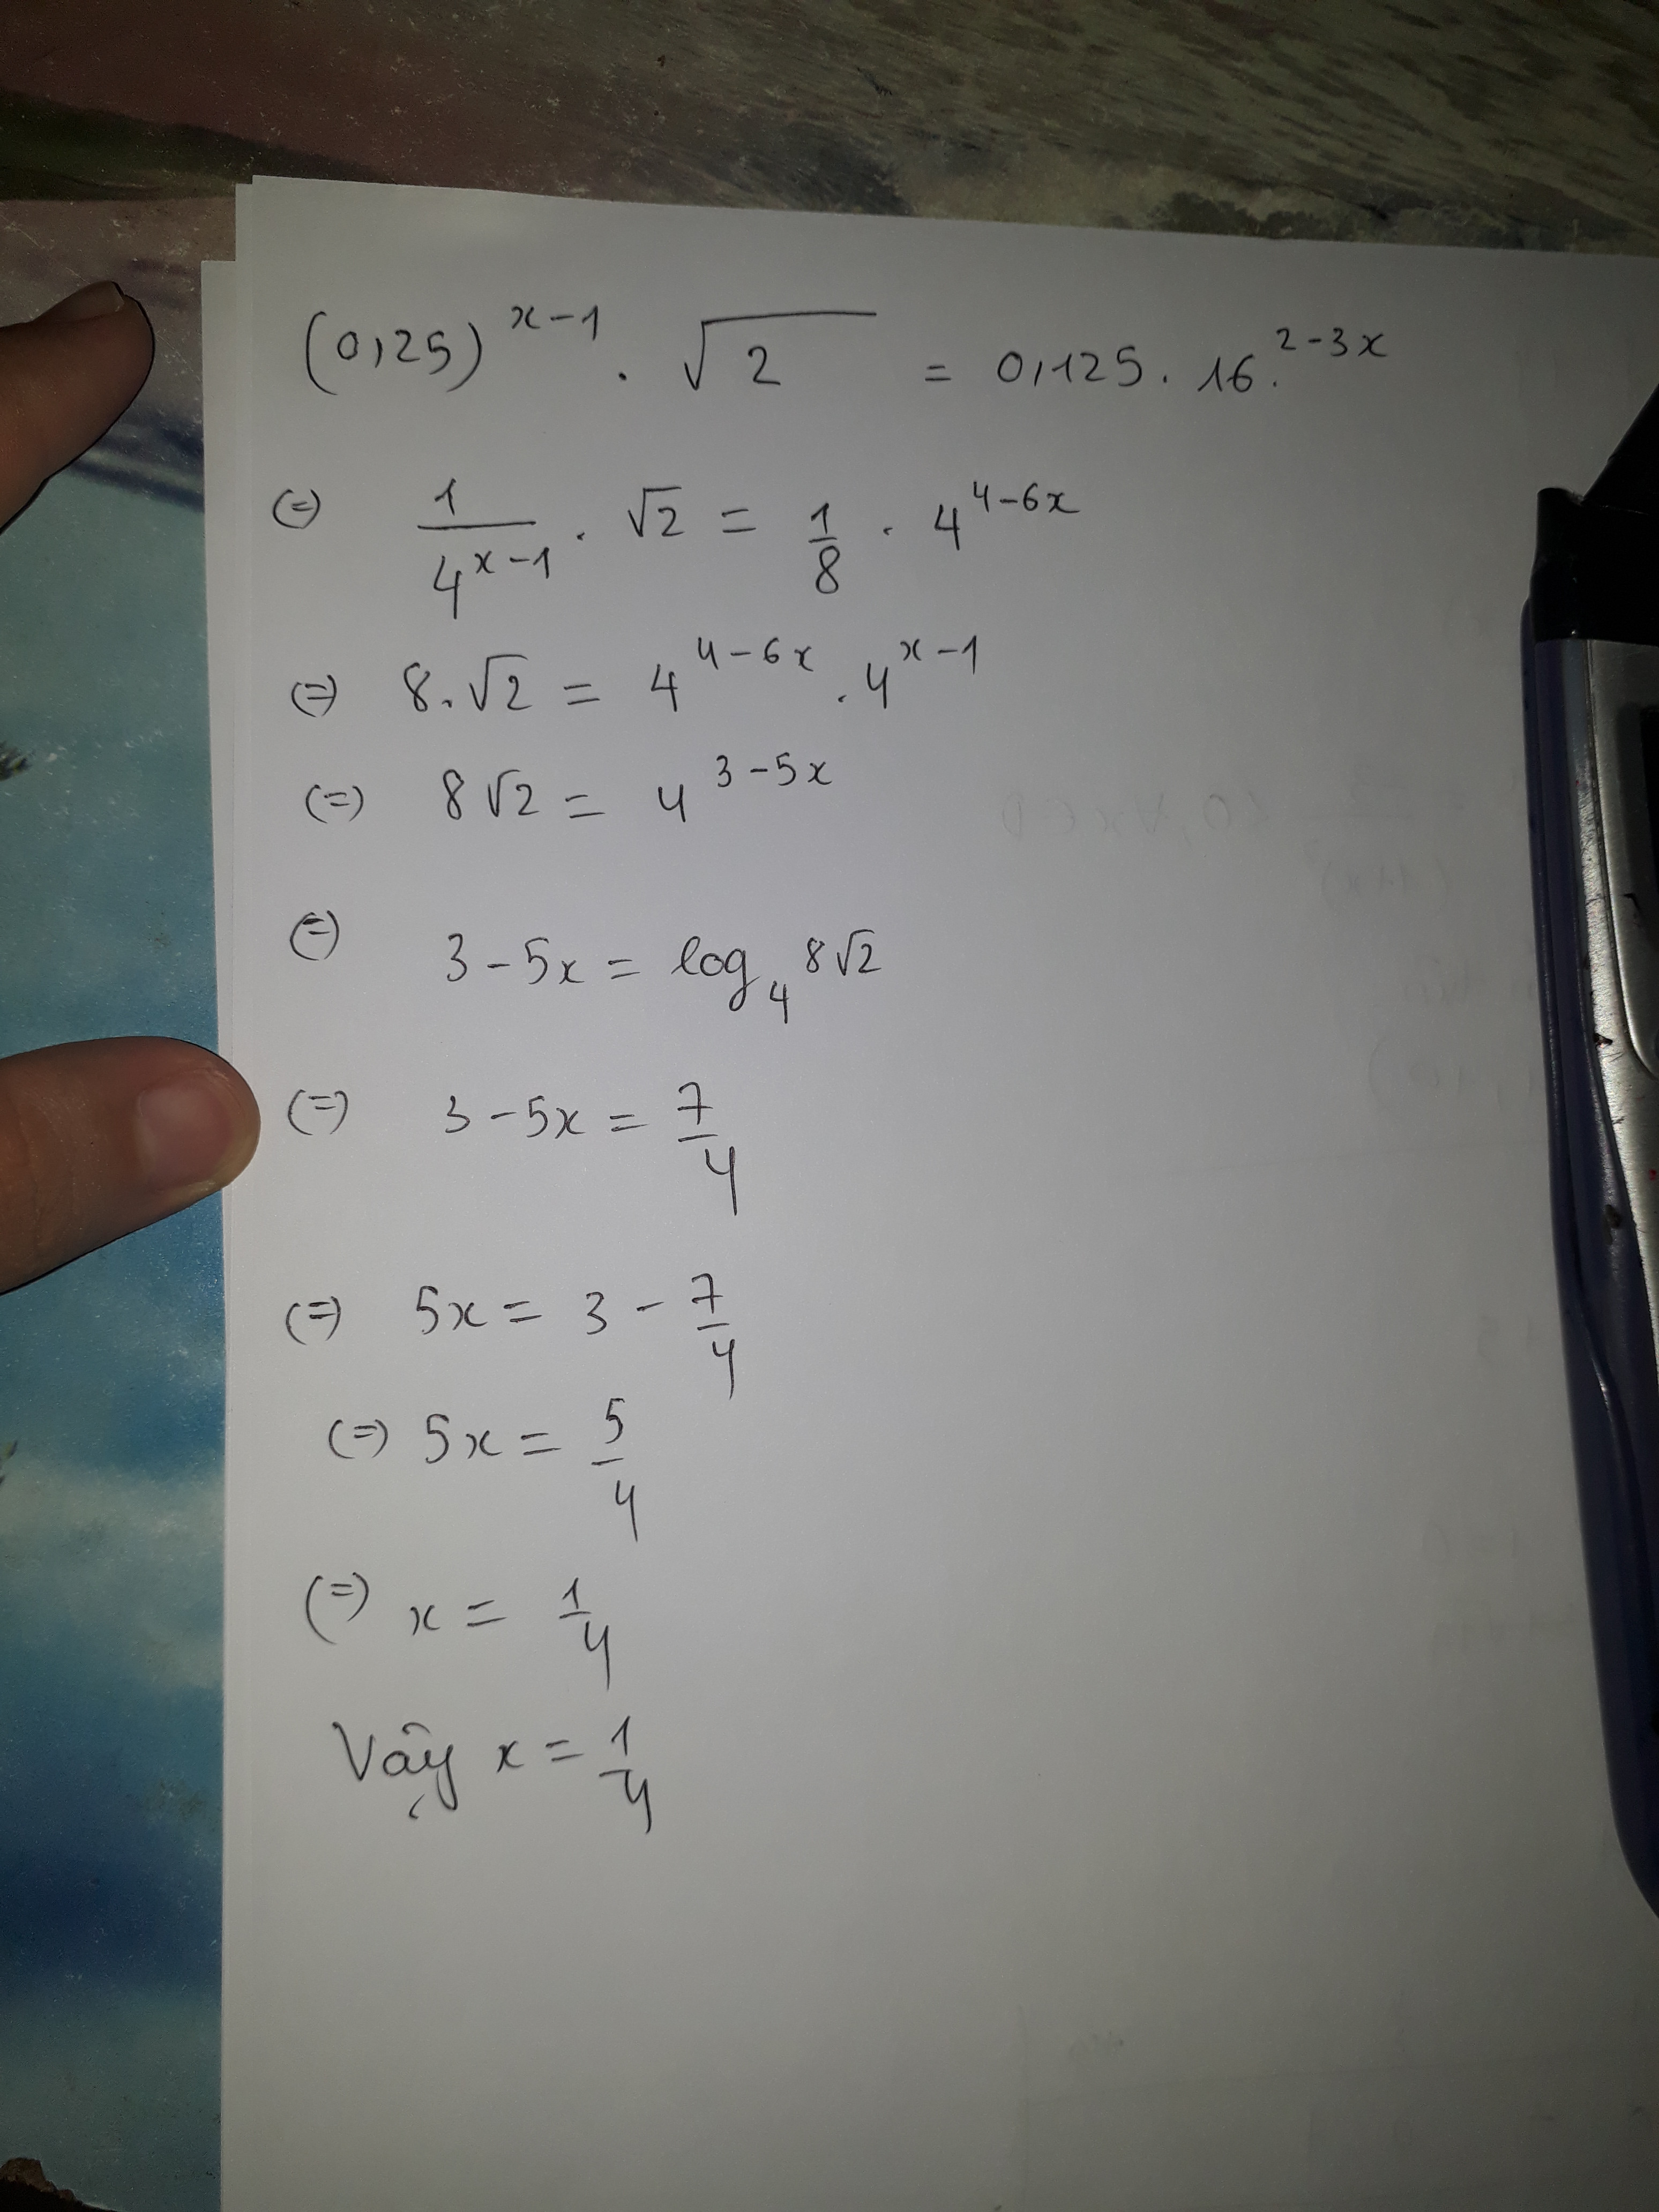 (0,25)^{x-1} . √2 = 0,125 . 16^{2-3x}
(=) 1/4^{x-1} . √2 = 1/8 . 4^{4-6x}
(=) 8.√2 = 4^{4-6x} . 4^{x-1}
(=) 8√2 = 4^{3-5x}
(=) 3-5x = log_4 8√2
(=) 3-5x = 7/4
(=) 5x = 3 - 7/4
(=) 5x = 5/4
(=) x = 1/4
Vậy x = 1/4